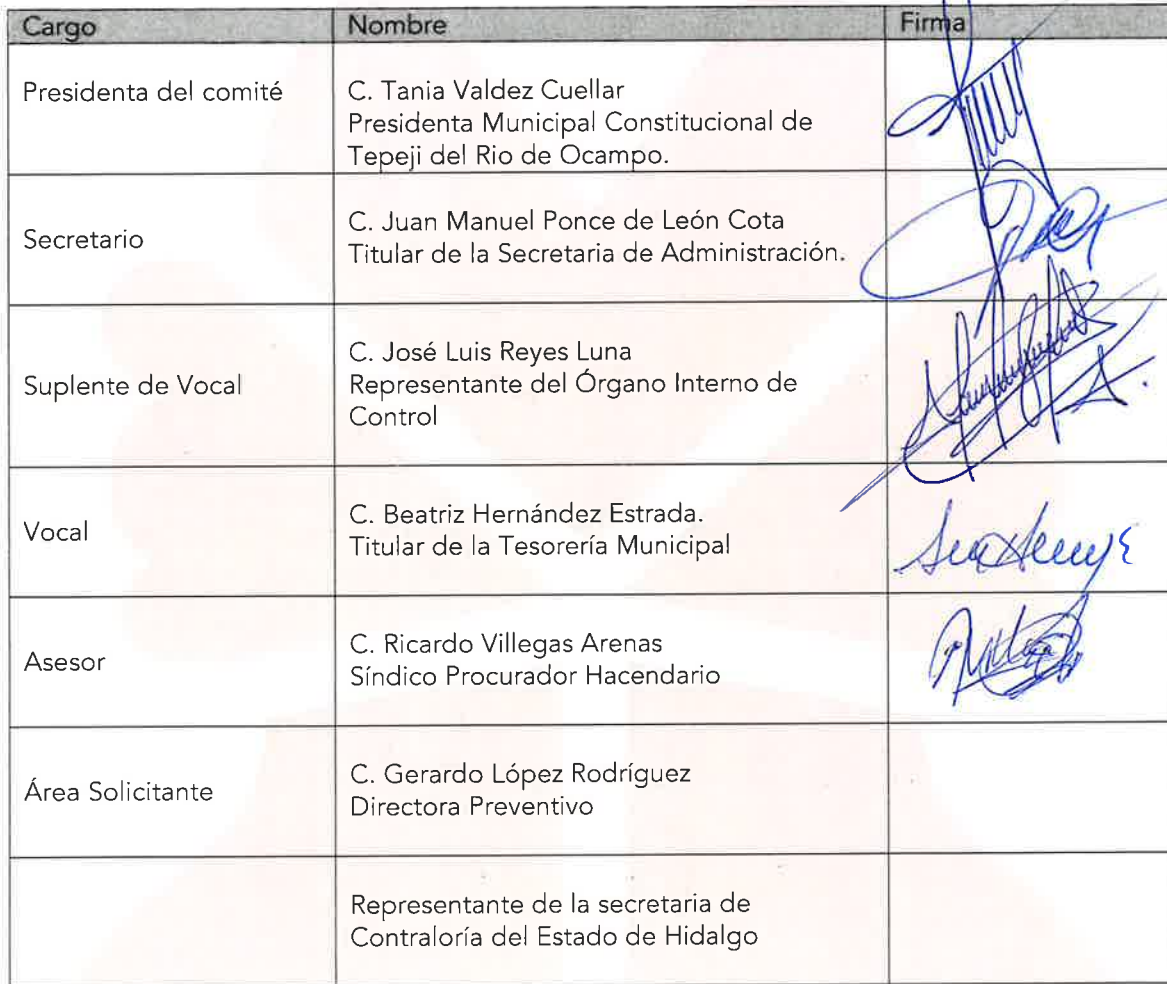 Cargo Nombre Firma
Presidenta del comité
C. Tania Valdez Cuellar
Presidenta Municipal Constitucional de
Tepeji del Rio de Ocampo.
Secretario
C. Juan Manuel Ponce de León Cota
Titular de la Secretaria de Administración.
Suplente de Vocal
C. José Luis Reyes Luna
Representante del Órgano Interno de
Control
Vocal
C. Beatriz Hernández Estrada.
Titular de la Tesorería Municipal
Asesor
C. Ricardo Villegas Arenas
Síndico Procurador Hacendario
Área Solicitante
C. Gerardo López Rodríguez
Directora Preventivo
Representante de la secretaria de
Contraloría del Estado de Hidalgo